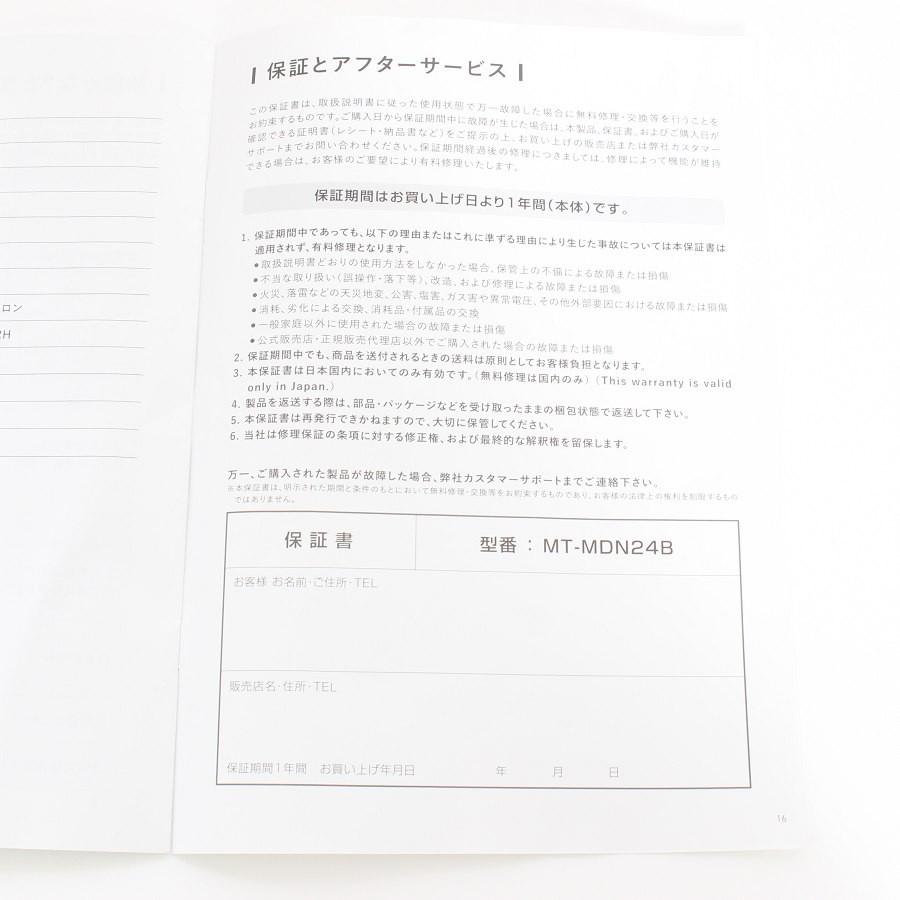 ロン
2H
保証とアフターサービス
この保証書は、取扱説明書に従った使用状態で万一故障した場合に無料修理・交換等を行うことを
お約束するものです。ご購入日から保証期間中に故障が生じた場合は、本製品、保証書、およびご購入日が
確認できる証明書（レシート・納品書など）をご提示の上、お買い上げの販売店または弊社カスタマー
サポートまでお問い合わせください。保証期間経過後の修理につきましては、修理によって機能が維持
できる場合は、お客様のご要望により有料修理いたします。
保証期間はお買い上げ日より1年間（本体）です。
1. 保証期間中であっても、以下の理由またはこれに準ずる理由により生じた事故については本保証書は
適用されず、有料修理となります。
●取扱説明書どおりの使用方法をしなかった場合、保管上の不備による故障または損傷
●不当な取り扱い（誤操作・落下等）、改造、および修理による故障または損傷
●火災、落雷などの天災地変、公害、塩害、ガス害や異常電圧、その他外部要因における故障または損傷
●消耗、劣化による交換、消耗品・付属品の交換
●一般家庭以外に使用された場合の故障または損傷
●公式販売店・正規販売代理店以外でご購入された場合の故障または損傷
2. 保証期間中でも、商品を送付されるときの送料は原則としてお客様負担となります。
3. 本保証書は日本国内においてのみ有効です。（無料修理は国内のみ）（This warranty is valid
only in Japan.）
4. 製品を返送する際は、部品・パッケージなどを受け取ったままの梱包状態で返送して下さい。
5. 本保証書は再発行できかねますので、大切に保管してください。
6. 当社は修理保証の条項に対する修正権、および最終的な解釈権を留保します。
万一、ご購入された製品が故障した場合、弊社カスタマーサポートまでご連絡下さい。
※本保証書は、明示された期間と条件のもとにおいて無料修理・交換等をお約束するものであり、お客様の法律上の権利を制限するもの
ではありません。
保証書
型番：MT-MDN24B
お客様 お名前・ご住所・TEL
販売店名・住所・TEL
保証期間1年間 お買い上げ年月日 年 月 日
16